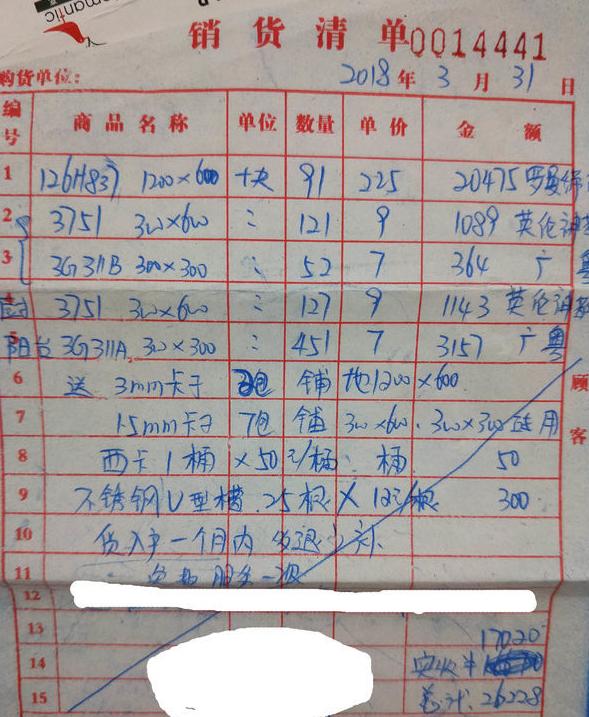 omantic
销货清单 0014441
购货单位： 2018年 3月 31日
编号 商品名称 单位 数量 单价 金额
1 126H837 1200×600 块 91 225 20475 罗曼缔
2 3751 300×600 : 121 9 1089 英伦
3 3G311B 300×300 : 52 7 364 广粤
4 3751 300×600 : 127 9 1143 英伦
5 阳台 3G311A 300×300 : 451 7 3157 广粤
6 送 3mm卡子 包 铺地1200×600
7 1.5mm卡子 7包 铺 300×600、300×300 用
8 西卡1桶 ×50元/桶 桶 50
9 不锈钢U型槽 25根 × 12元/根 300
10 货入户一个月内
11
12
13 17020
14 实收
15 总计: 26228
顾客